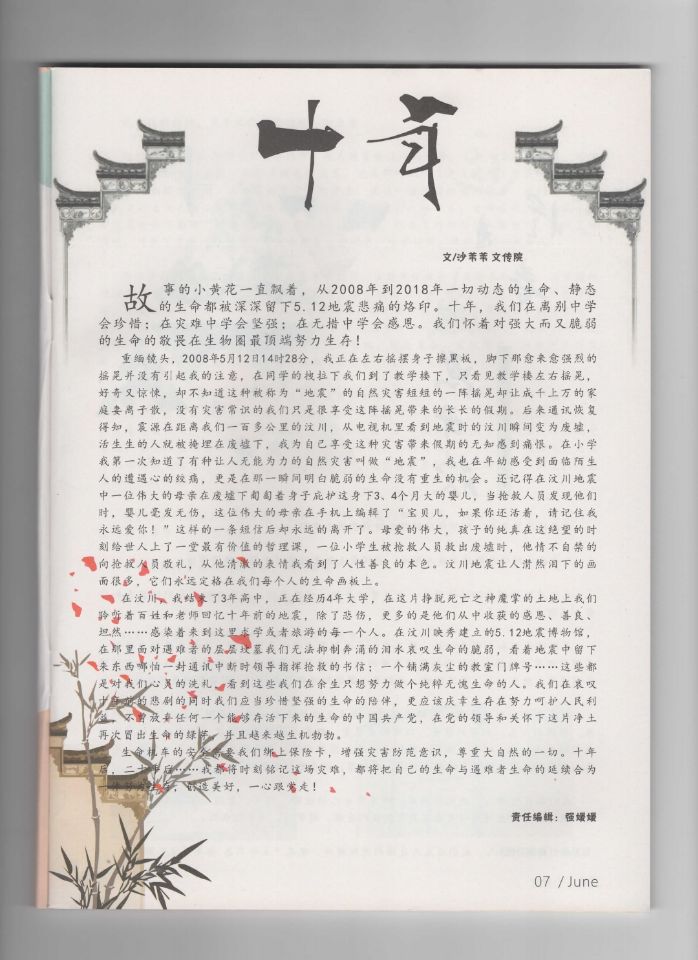 十年
文/沙苇苇 文传院
故事的小黄花一直飘着，从2008年到2018年一切动态的生命、静态
的生命都被深深留下5.12地震悲痛的烙印。十年，我们在离别中学
会珍惜；在灾难中学会坚强；在无措中学会感恩。我们怀着对强大而又脆弱
的生命的敬畏在生物圈最顶端努力生存！
重缅镜头，2008年5月12日14时28分，我正在左右摇摆身子擦黑板，脚下那愈来愈强烈的
摇晃并没有引起我的注意，在同学的拽拉下我们到了教学楼下，只看见教学楼左右摇晃，
好奇又惊悚，却不知道这种被称为“地震”的自然灾害短短的一阵摇晃却让成千上万的家
庭妻离子散，没有灾害常识的我们只是很享受这阵摇晃带来的长长的假期。后来通讯恢复
得知，震源在距离我们一百多公里的汶川，从电视机里看到地震时的汶川瞬间变为废墟，
活生生的人就被掩埋在废墟下，我为自己享受这种灾害带来假期的无知感到痛恨。在小学
我第一次知道了有种让人无能为力的自然灾害叫做“地震”，我也在年幼感受到面临陌生
人的遭遇心的绞痛，更是在那一瞬间明白脆弱的生命没有重生的机会。还记得在汶川地震
中一位伟大的母亲在废墟下匍匐着身子庇护这身下3、4个月大的婴儿，当抢救人员发现他们
时，婴儿毫发无伤，这位伟大的母亲在手机上编辑了“宝贝儿，如果你还活着，请记住我
永远爱你！”这样的一条短信后却永远的离开了。母爱的伟大，孩子的纯真在这绝望的时
刻给世人上了一堂最有价值的哲理课，一位小学生被抢救人员救出废墟时，他情不自禁的
向抢救人员敬礼，从他清澈的表情我看到了人性善良的本色。汶川地震让人潸然泪下的画
面很多，它们永远定格在我们每个人的生命画板上。
在汶川，我结束了3年高中，正在经历4年大学，在这片挣脱死亡之神魔掌的土地上我们
聆听着百姓和老师回忆十年前的地震，除了悲伤，更多的是他们从中收获的感恩、善良、
坦然……感染着来到这里求学或者旅游的每一个人。在汶川映秀建立的5.12地震博物馆，
在那里面对遇难者的层层坟墓我们无法抑制奔涌的泪水哀叹生命的脆弱，看着地震中留下
来东西哪怕一封通讯中断时领导指挥抢救的书信；一个铺满灰尘的教室门牌号……这些都
是对我们心灵的洗礼。看到这些我们在余生只想努力做个纯粹无愧生命的人。我们在哀叹
十年前的悲剧的同时我们应当珍惜坚强的生命的陪伴，更应该庆幸生存在努力呵护人民利
益，不曾放弃任何一个能够存活下来的生命的中国共产党，在党的领导和关怀下这片净土
再次冒出生命的绿芽，并且越来越生机勃勃。
生命机车的安全需要我们绑上保险卡，增强灾害防范意识，尊重大自然的一切。十年
后，二十年后……我都将时刻铭记这场灾难，都将把自己的生命与遇难者生命的延续合为
一体努力生存，创造美好，一心跟党走！
责任编辑：强媛媛
07 / June